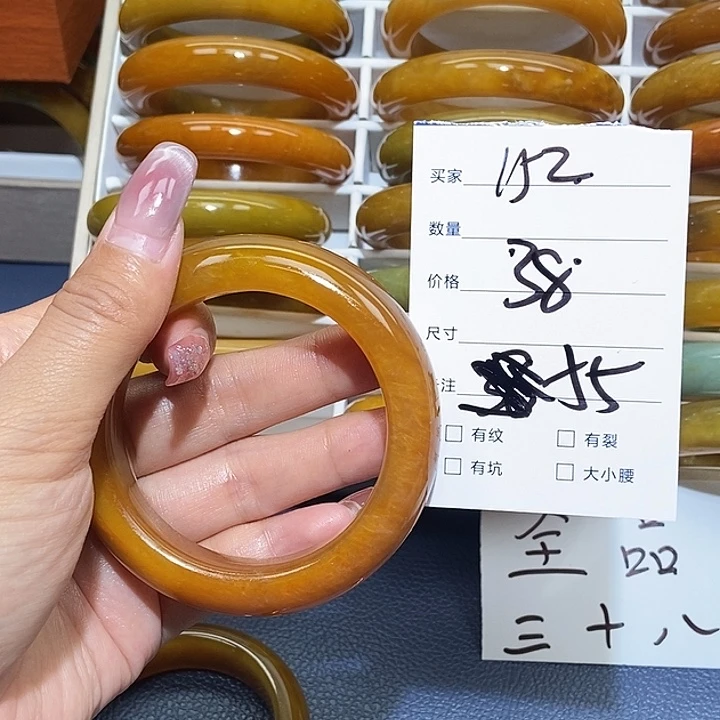 买家 152.
数量
价格 58.
尺寸 55
有纹 有裂
有坑 大小腰
全品
三十八